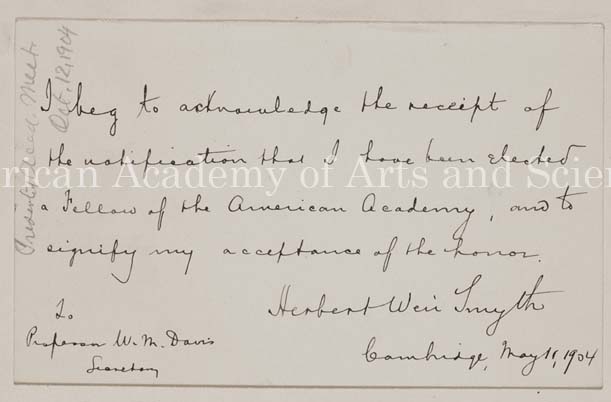 Presented Acad. Meet.
Oct. 12, 1904
I beg to acknowledge the receipt of
the notification that I have been elected
a Fellow of the American Academy, and to
signify my acceptance of the honor.
Herbert Weir Smyth
Cambridge, May 11, 1904
To
Professor W. M. Davis
Secretary
rican Academy of Arts and Scien